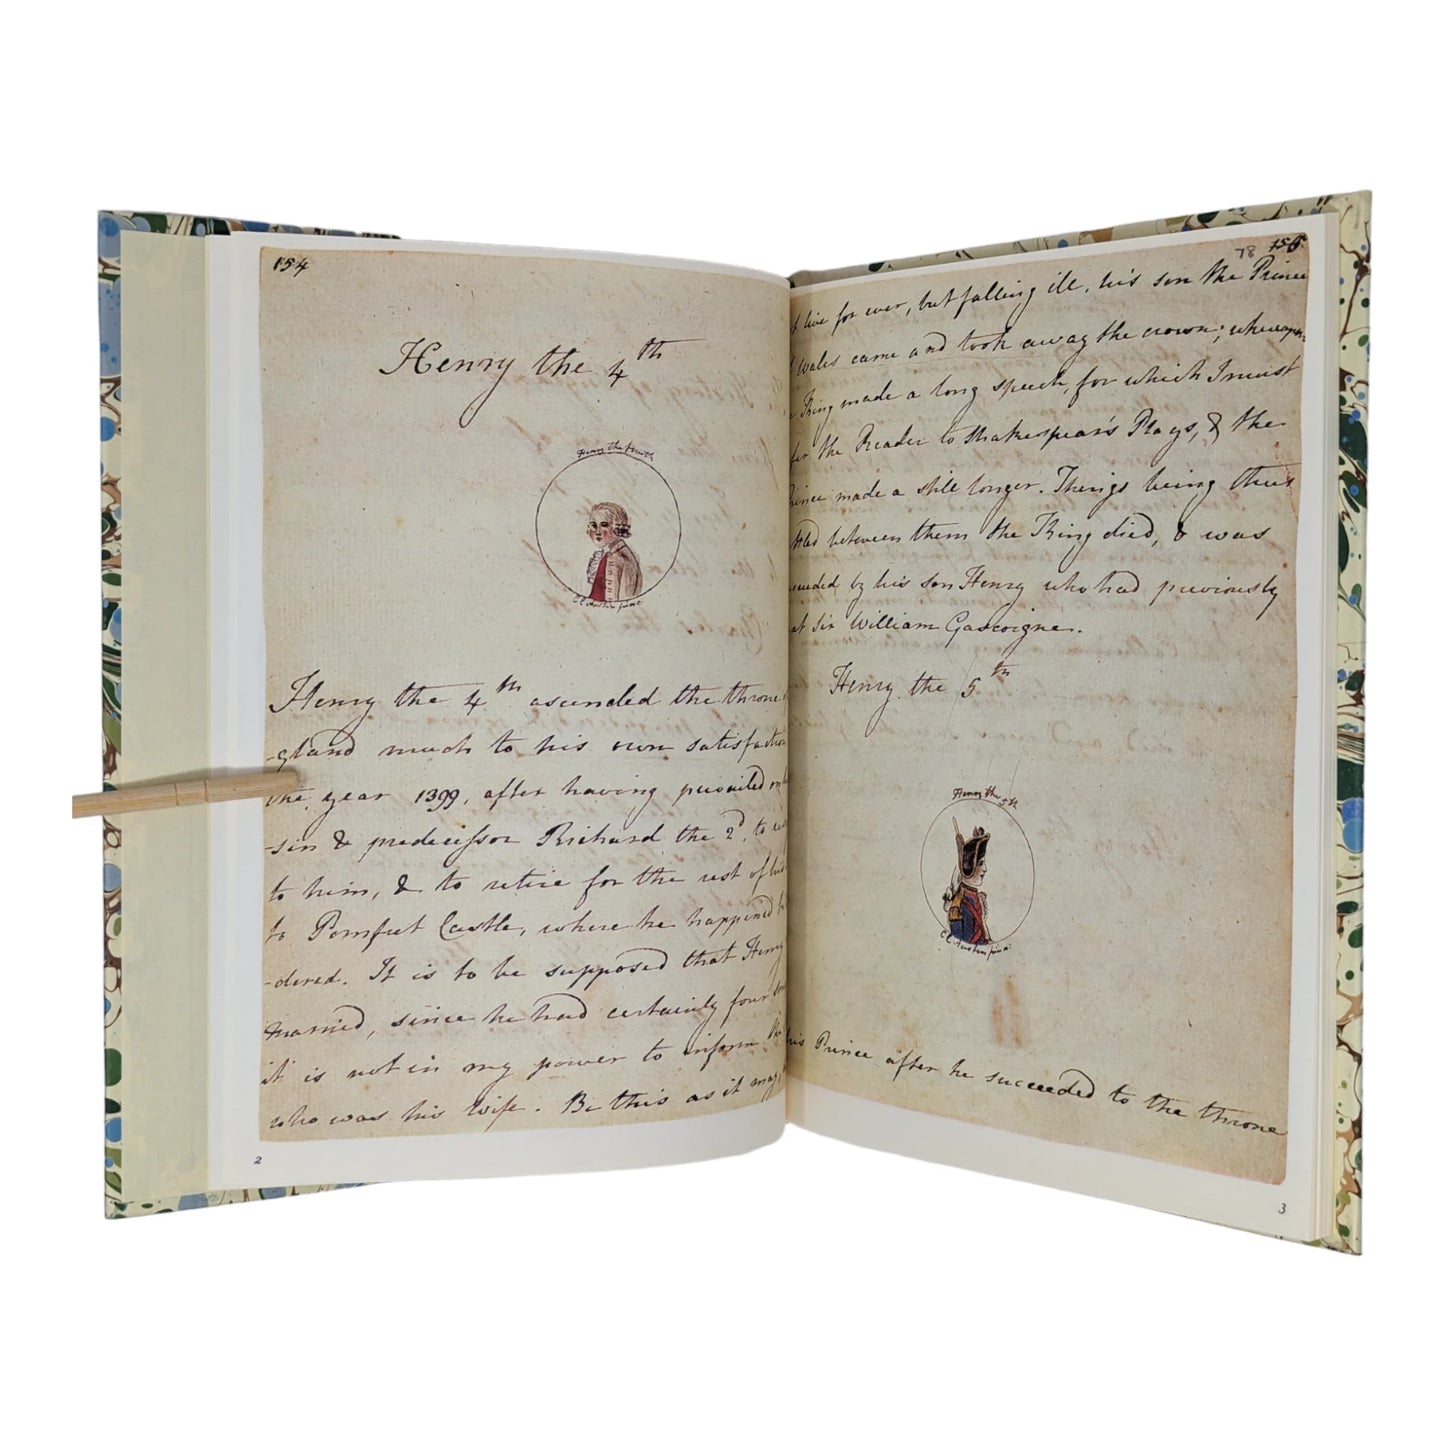 154
Henry the 4th
Henry the fourth
C E Austin pinx.
Henry the 4th ascended the throne
-gland much to his own satisfaction
the year 1399, after having prevailed on
-sin & predecessor Richard the 2d, to
to him, & to retire for the rest of his
to Pomfret Castle, where he happened
-dered. It is to be supposed that Henry
married, since he had certainly four
it is not in my power to inform the
who was his Wife. Be this as it may,
2
78 155
live for ever, but falling ill, his son the Prince
Wales came and took away the crown; whereupon
King made a long speech, for which I must
the Reader to Shakespear's Plays, & the
Prince made a still longer. Things being thus
between them the King died, & was
by his son Henry who had previously
Sir William Gascoigne.
Henry the 5th
Henry the 5th
C E Austin pinx.
Prince after he succeeded to the throne
3